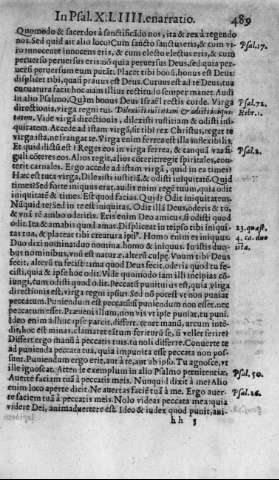 In Psal. XLIIII. enarratio. 489
Quomodo & sacerdos à sanctificãdo nos, ita & rex à regendo
nos. Sed quid ait alio loco? Cum sancto sanctus eris, & cum vi-
ro innocente innocens eris, & cum electo electus eris, & cum
peruerso peruersus eris: nõ quia peruersus Deus, sed quia per-
uersi peruersum eum putãt. Placet tibi bonũ, bonus est Deus:
displicet tibi, quasi prauus est Deus. Cursus est ad te, tua
curuatura facit hoc: nam illius rectitudo semper manet. Audi
in alio Psalmo, Quàm bonus Deus Israël rectis corde. Virga
directionis, virga regni tui. Dilexisti iustitiam & odisti iniqui-
tatem. Vide virgã directionis, dilexisti iustitiam & odisti ini-
quitatem. Accede ad istam virgã, sit tibi rex Christus, regat te
virga ista, ne frangat te. Virga enim ferrea est illa inflexibilis.
Et quid dictũ est? Reges eos in virga ferrea, & tanquã vas fi-
guli cõteres eos. Alios regit, alios cõterit: regit spiritales, con-
terit carnales. Ergo accede ad istam virgã, quid in ea times?
Hæc est tota virga, Dilexisti iustitiã & odisti iniquitatẽ. Quid
times? Sed forte iniquus eras, audis enim regẽ tuum, quia odit
iniquitatẽ & times. Est quod facias. Quid? Odit iniquitatem.
Nũquid te? Sed in te est iniquitas. Odit illã Deus, oderis & tu,
& vnã rẽ ambo oderitis. Eris enim Deo amicus, si odisti quod
odit. Ita & amabis quod amat. Displiceat in teipso tibi iniqui-
tas tua, & placeat tibi creatura ipsi. Homo enim es iniquus.
Duo dixi nomina: duo nomina, homo & iniquus. In istis duo-
bus nominibus, vnũ est naturæ, alterũ culpæ. Vnum tibi Deus
fecit, alterũ tu fecisti: ama quod Deus fecit, oderis quod tu fe-
cisti, quia & ipse hoc odit. Vide quomodo iam illi incipias cõ-
iungi, cum odisti quod odit. Peccatũ puniturus est, quia virga
directionis est, virga regni ipsius. Sed nõ potest vt non puniat
peccatum. Puniendum est peccatũ: si puniendum non esset, nec
peccatum esset. Præueni illum, non vis vt ipse puniat, tu puni.
Ideo enim adhuc ipse parcit, differt, tenet manũ, arcum inten-
dit, hoc est minas, clamaret se feriturũ, si vellet ferire?
Differt ergo manũ à peccatis tuis, tu noli differre. Conuerte te
ad punienda peccata tua, quia impunita esse peccata non pos-
sunt. Puniendum ergo erit, aut à te, aut ab ipso. Tu agnosce, vt
ille ignoscat. Attende exemplum in alio Psalmo pœnitentiæ,
Auerte faciem tuã à peccatis meis. Nunquid dixit à me? Alio
enim loco aperte dicit, Ne auertas faciẽ tuã à me. Ergo auer-
te faciem tuã à peccatis meis. Nolo videas peccata mea: quia
videre Dei, animaduertere est. Ideo & iudex quod punit, ani-
hh 5
Psal. 17.
Psal. 72.
Hebr. 1.
Psal. 2.
23. quæst.
4. ca. duo
ista.
Psal. 50.
Psal. 26.